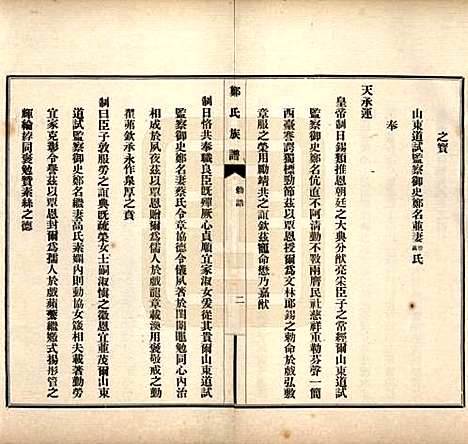 之寶
山東道試監察御史鄭名並妻蔡高氏
奉
天承運
皇帝制曰錫類推恩朝廷之大典分猷亮采臣子之常經爾山東道試
監察御史鄭名伉直不阿清勤不斁兩膺民社慈祥重勒芬聲一簡
西臺謇諤獨標勁節茲以覃恩授爾爲文林郎錫之勅命於戲弘敷
章服之榮用勵靖共之誼欽茲寵命懋乃嘉猷
制曰恪共奉職良臣旣殫厥心貞順宜家淑女爰從其貴爾山東道試
監察御史鄭名妻蔡氏令章協德令儀夙著於閨闈黽勉同心內治
相成於夙夜茲以覃恩贈爾爲孺人於戲龍章載渙用褒敬戒之勤
翟茀欽承永作泉厚之賁
制曰臣子敦服勞之誼典旣疏榮女士嗣淑愼之徽恩宜並茂爾山東
道試監察御史鄭名繼妻高氏素嫺內則動協女箴相夫載著勤勞
宜家克彰令譽茲以覃恩封爾爲孺人於戲蘋蘩繼媺式揚彤管之
輝綸綍同褒勉贊素絲之德
鄭氏族譜
勅誥
二